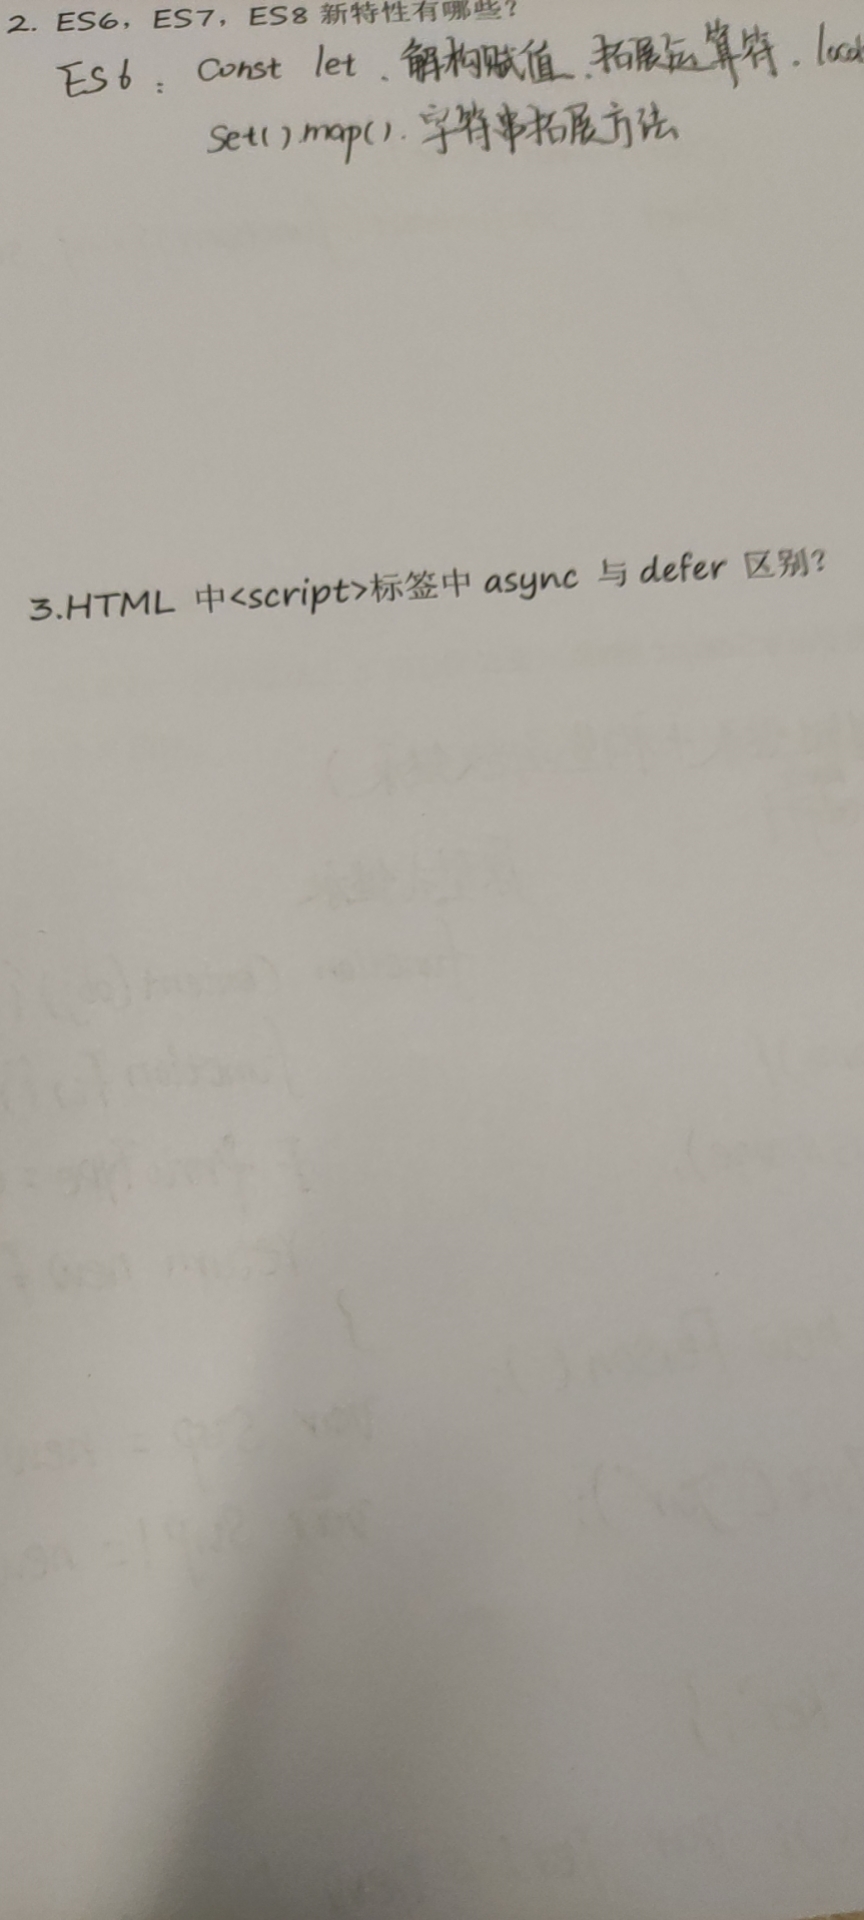 2. ES6，ES7，ES8 新特性有哪些？
ES6：Const let、解构赋值、拓展运算符、local
Set()、map()、字符串拓展方法
3.HTML 中<script>标签中 async 与 defer 区别？